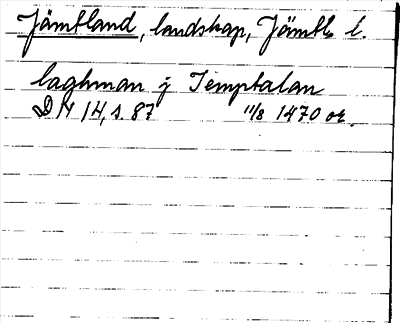 Jämtland, landskap, Jämtl. l.
laghman j Temptalan
DN 14, s. 87 11/8 1470 or.